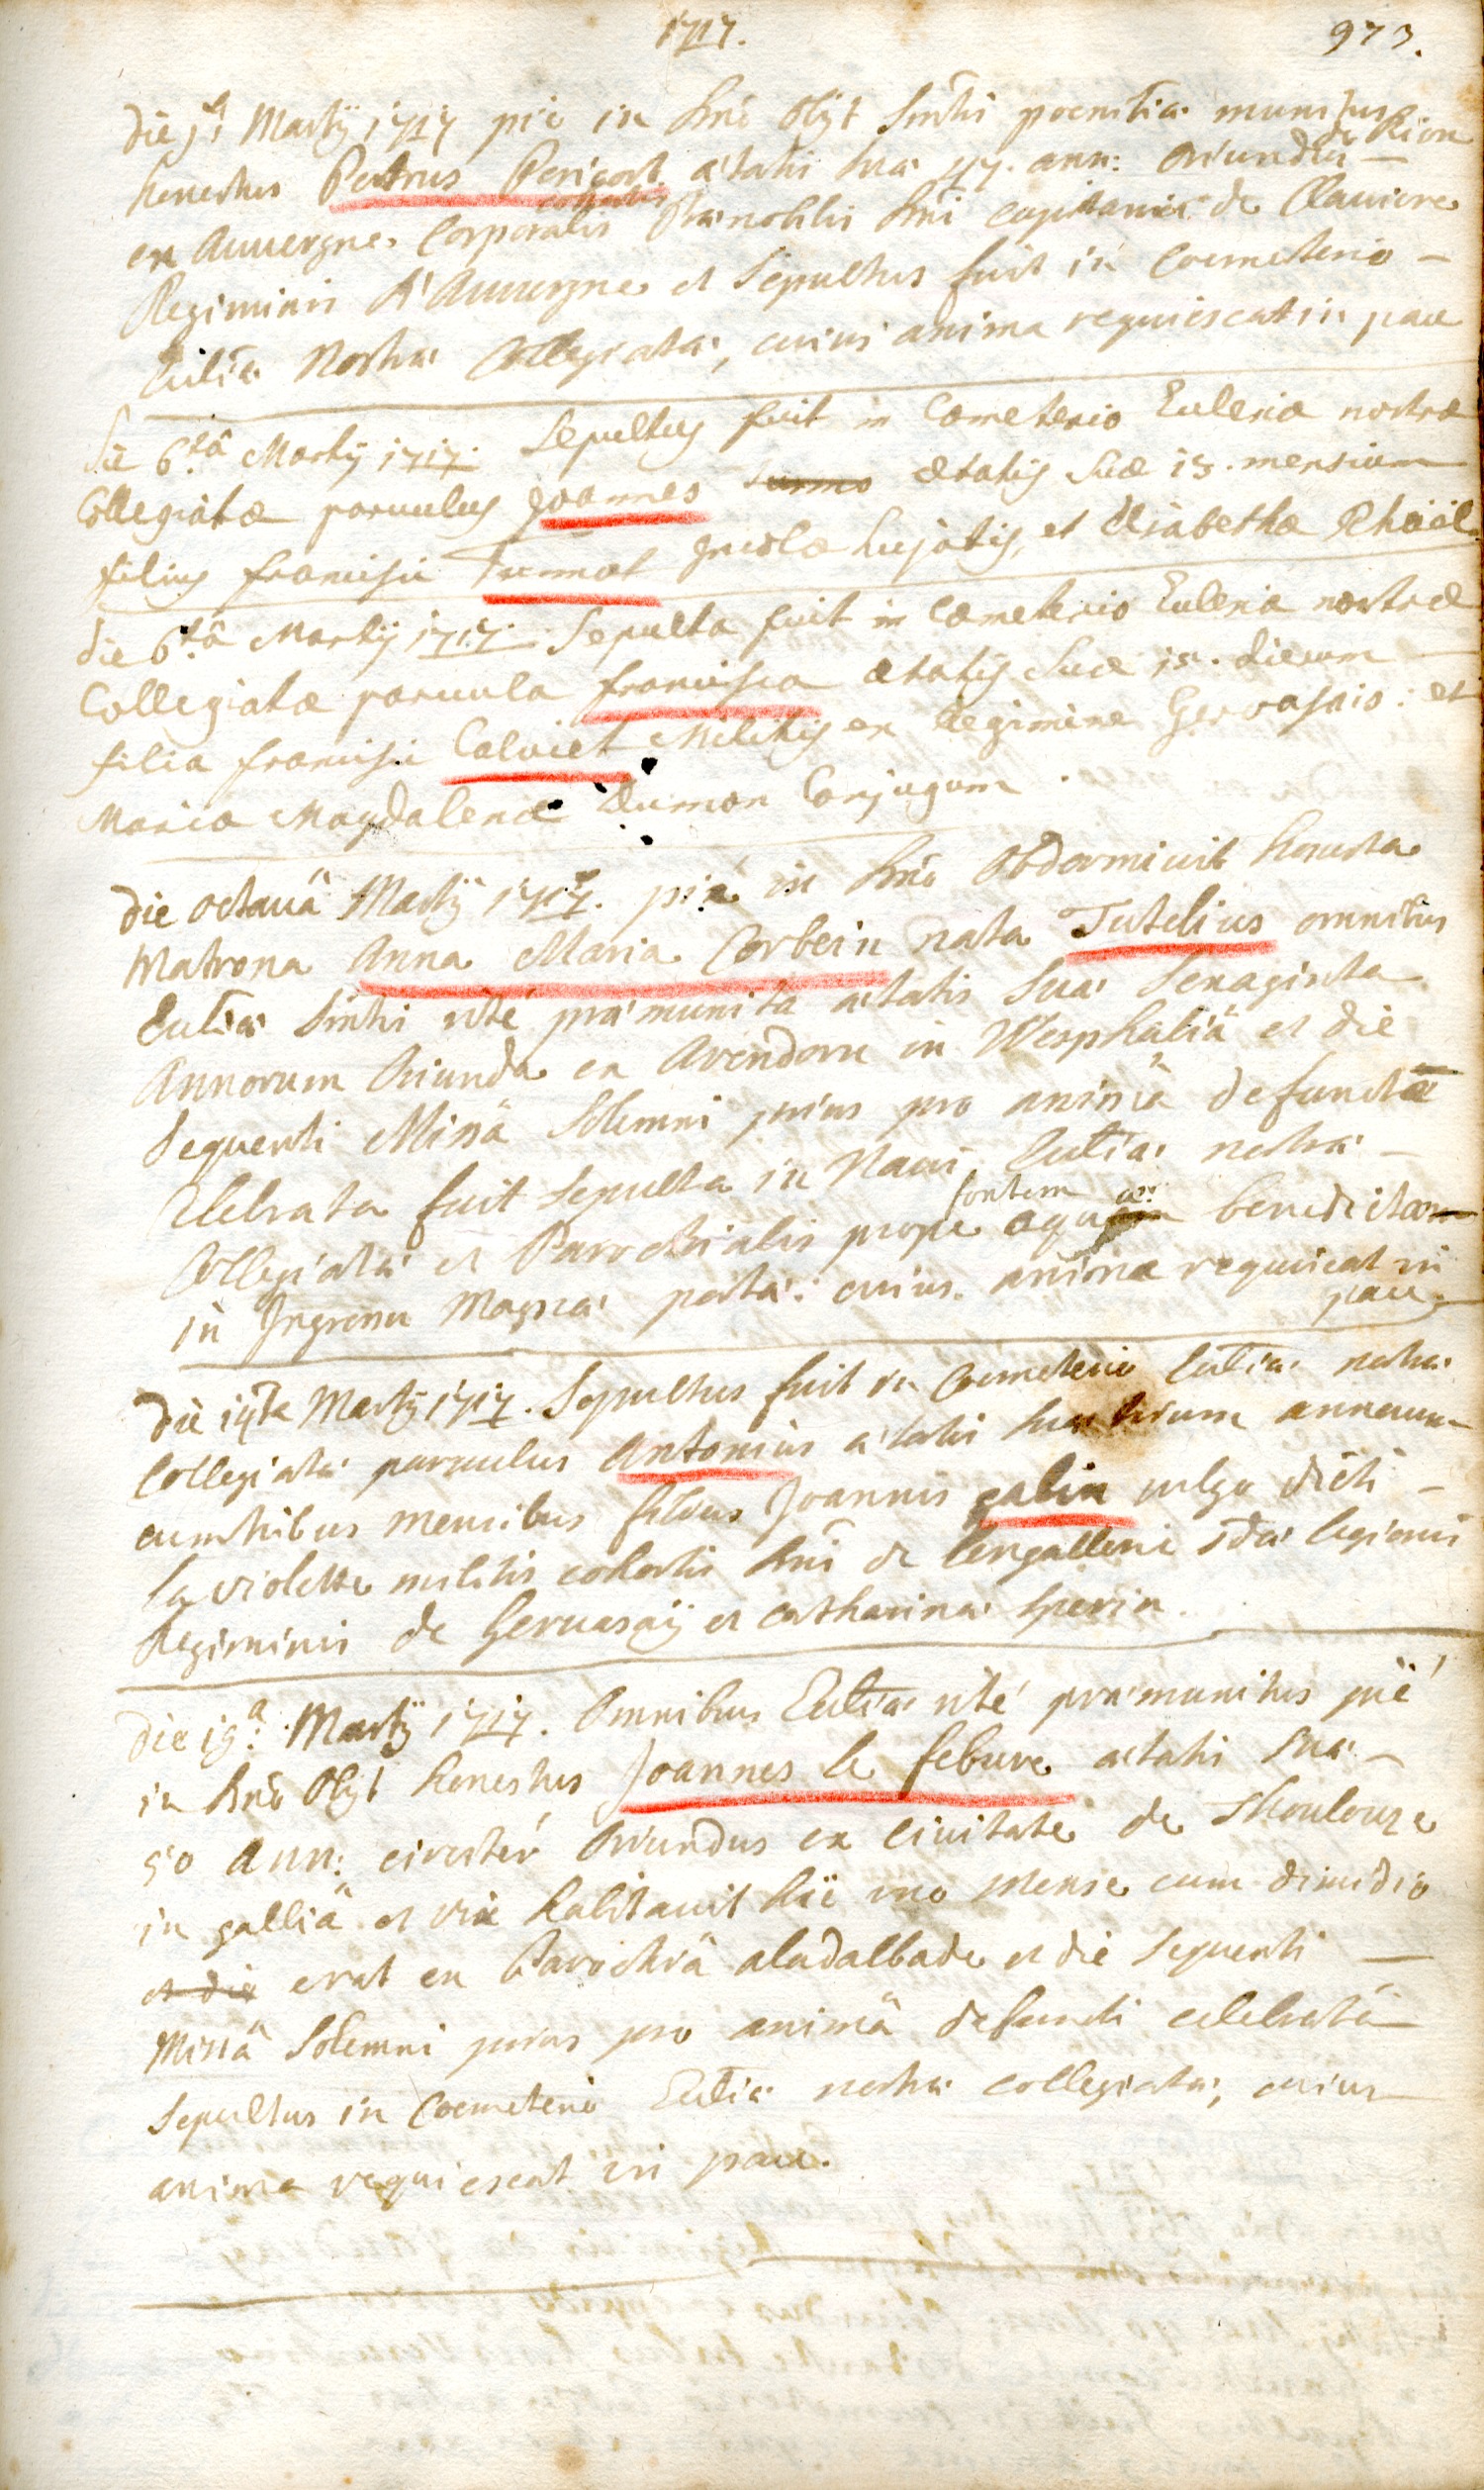 1717.
973.
die 1a Martÿ 1717 piè in Dnõ obÿt Sm̃tis pœnit̃iæ munitus
honestus Petrus Pericort ætatis suæ 47. ann: oriundus de Rion
en Auvergne. Corporalis cohortis Prænobilis Dñi capitanei de Claviere
Regiminis d'Auvergne et Sepultus fuit in Coemeterio
Eccl̃iæ Nostræ Collegiatæ, cuius anima requiescat in pace
Die 6tâ Martÿ 1717. Sepultus fuit in Cœmeterio Ecclesiæ nostræ
Collegiatæ parvulus Joannes ætatis suæ 13. mensium
filius francisci Tumot Incolæ hujatis, et Elisabethæ Rhäël
die 6tâ Martÿ 1717. Sepulta fuit in Cœmeterio Ecclesiæ nostræ
Collegiatæ parvula francisca ætatis suæ 15. dierum
filia francisci Calviet Militis ex Regimine Gervasais: et
Mariæ Magdalenæ Dumon Conjugum.
Die octavâ Martÿ 1717. piè in Dnõ obdormivit honesta
Matrona Anna Maria Corbein nata Tutelius omnibus
Eccl̃iæ Sm̃tis rité præmunita ætatis suæ Sexaginta
Annorum oriunda ex Avendorn in Wesphaliâ et die
Sequenti Missâ Solemni prius pro animâ defunctæ
Celebrata fuit Sepulta in Navi Eccl̃iæ nostræ
Collegiatæ et Parochialis prope fontem aquæ benedictæ
in Ingressu Magnæ portæ: cuius anima requiescat in
pace.
Die 14ta Martÿ 1717. Sepultus fuit in Coemeterio Eccl̃iæ nostræ
Collegiatæ parvulus Antonius ætatis suæ trium annorum
cum tribus mensibus filius Joannis galin vulgo dicti
la violette militis cohortis Dñi de lengallerie 2dæ legionis
Regiminis de Gervasaÿ et Catharinæ Sperin.
Die 19a: Martÿ 1717. Omnibus Eccl̃iæ rité præmunitus piè
in Dnõ obÿt honestus Joannes le febure ætatis suæ
50 Ann: circiter oriundus ex civitate de Thoulouze
in galliâ et vix habitavit hic uno mense cum dimidio
et die erat ex Parochiâ aladalbade et die sequenti
Missâ Solemni prius pro animâ defuncti celebratâ
Sepultus in Coemeterio Eccl̃iæ nostræ collegiatæ, cuius
anima requiescat in pace.